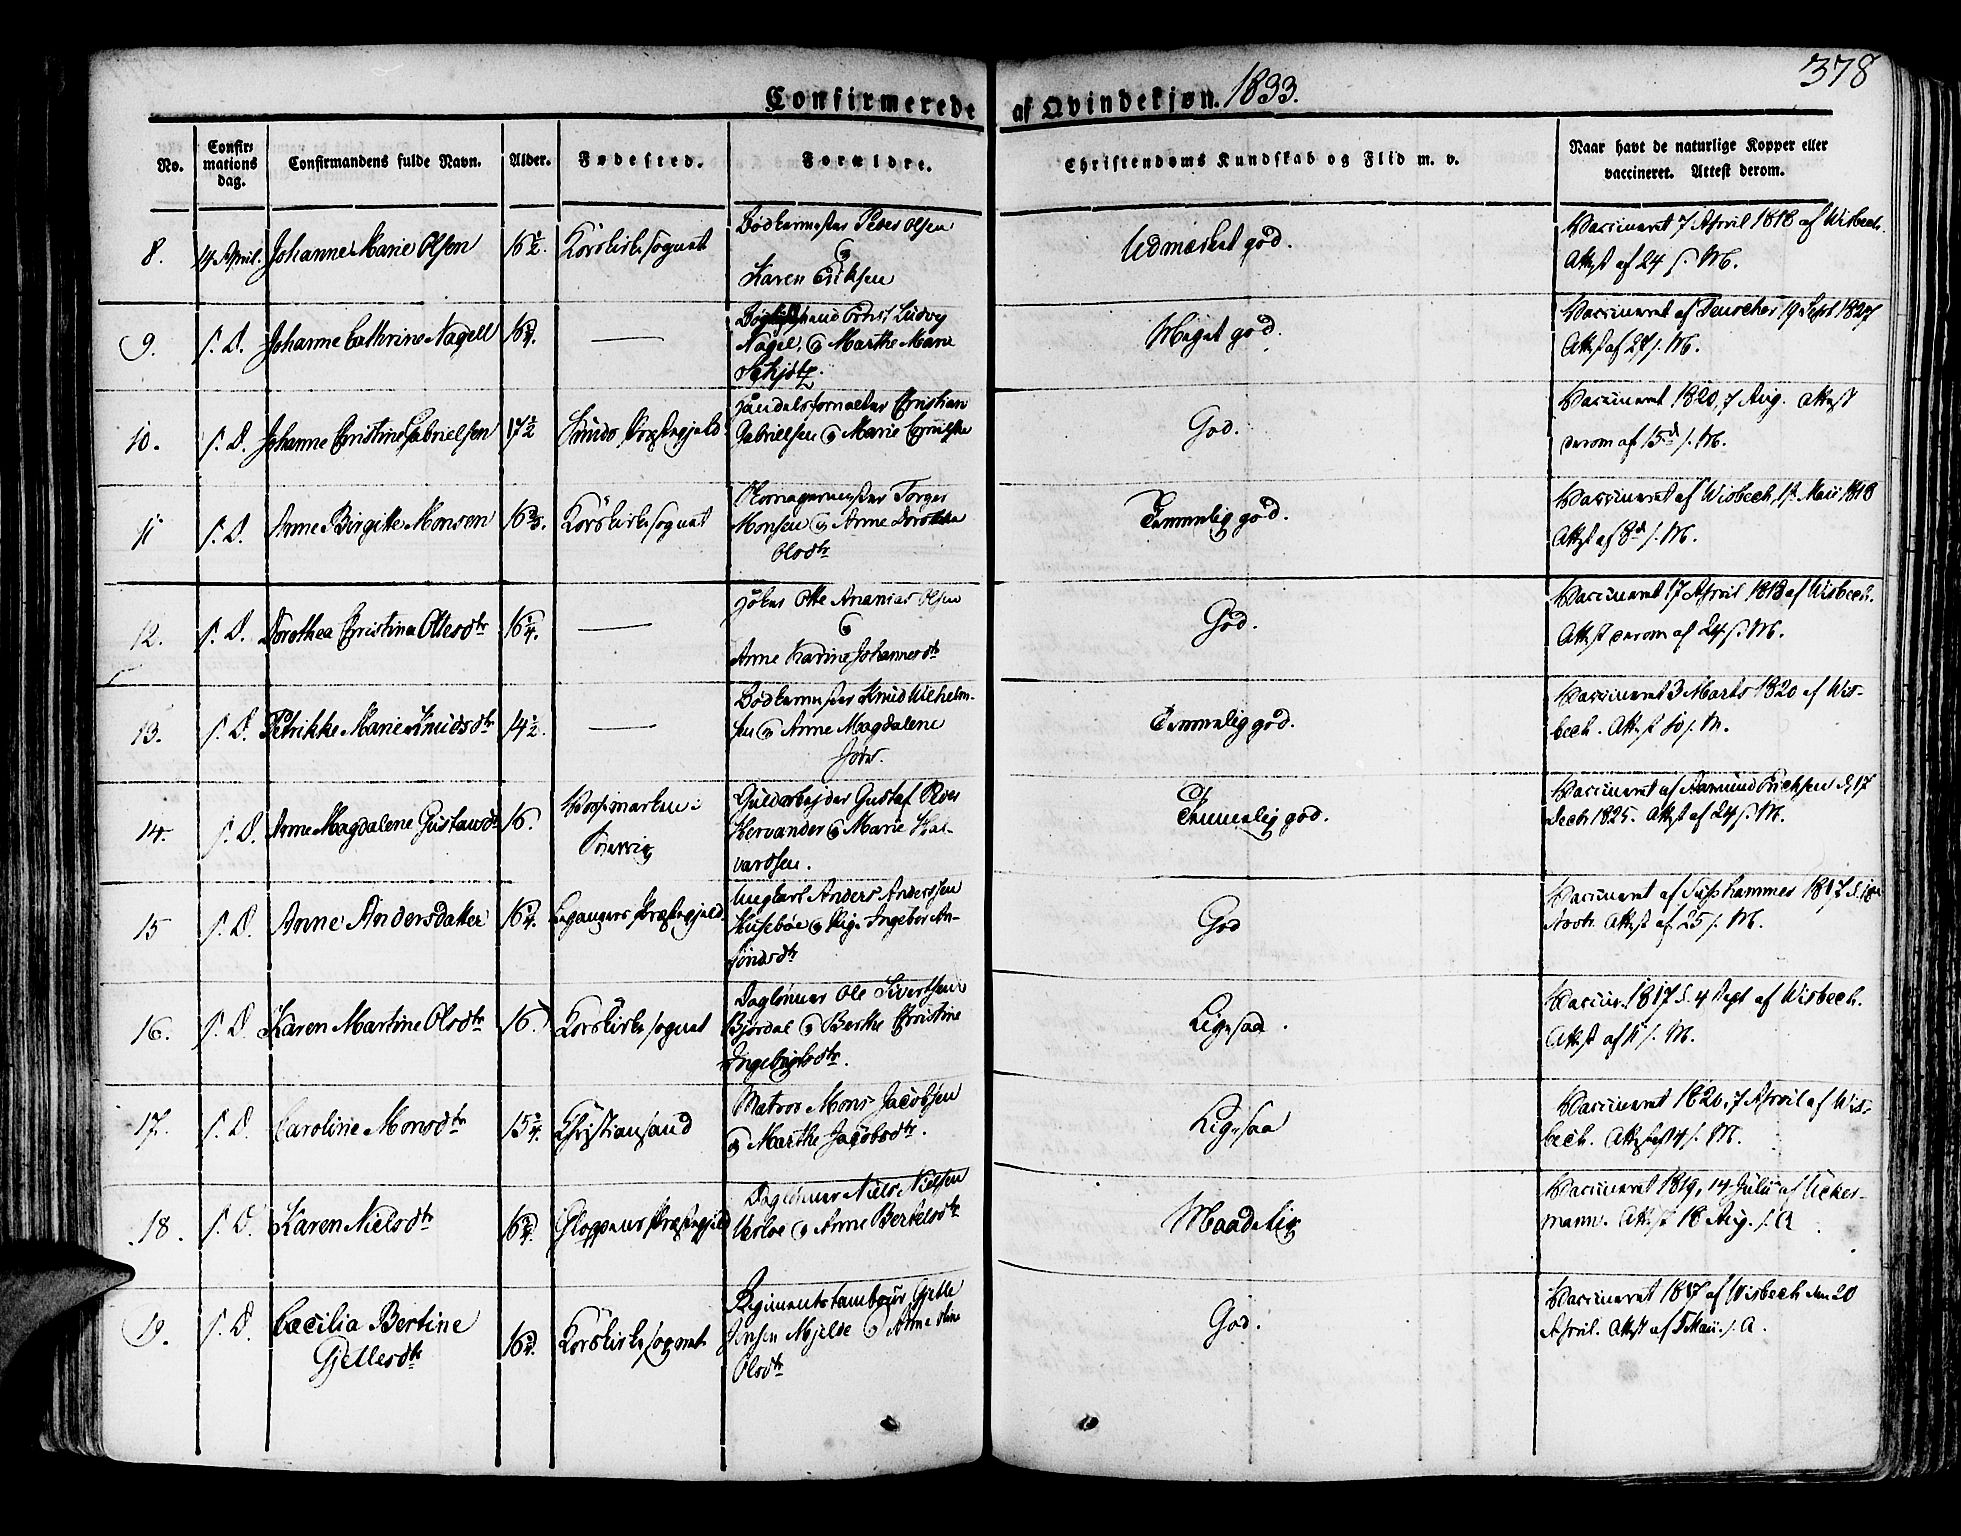 378
Confirmerede af Qvindekjøn. 1833.
No.
Confir-
mations
dag.
Confirmandens fulde Navn.
Alder.
Fødested.
Forældre.
Christendoms Kundskab og Flid m. v.
Naar havt de naturlige Kopper eller
vaccineret. Attest derom.
8. 14 April. Johanne Marie Olsen 16 1/2. Korskirkesognet
Bødkermester Peder Olsen
&
Karen Eriksen
Udmærket god.
Vaccineret 7 April 1818 af Wisbech.
Attest af 24 s. M.
9. s. D. Johanne Cathrine Nagell 16 3/4. —
Ernst Ludvig
Nagel, & Marthe Marie
Meget god.
Vaccineret af 19 Sept 1827
Attest af 24 s. M.
10. s. D. Johanne Christine Gabrielsen 17 1/2 Præstegjeld
Christian
Gabrielsen & Marie
God.
Vaccineret 1820, 7 Aug. Attest
derom af 15d s. M.
11 s. D. Anne Birgitte Monsen 16 Korskirkesognet
Torger
Monsen & Anne Dorothea
Olsdtr
Temmelig god.
Vaccineret af Wisbech, 1st Maii 1818
Attest af 8d s. M.
12. s. D. Dorothea Christina Ottesdtr 16 1/4. —
Otte Ananias Olsen
&
Anne Karine Johannesdtr
God.
Vaccineret 17 April 1818 af Wisbech.
Attest derom af 24 s. M.
13. s. D. Petrikke Marie Knudsdtr 14 1/2. —
Bødkermester Knud Wilhelm-
sen & Anne Magdalene
Temmelig god.
Vaccineret 3 Marts 1820 af Wis-
bech. Attest s. M.
14. s. D. Anne Magdalene Gustavsdtr 16.
Guldarbejder Gustaf Peder
& Marie Hal-
vardsen.
Temmelig god.
Vaccineret af Aamund Erichsen d. 17
Decbr 1825. Attest af 24 s. M.
15 s. D. Anne Andersdatter 16 3/4. Præstegjeld.
Ungkarl Anders Anderssen
Husebøe & Pige Ingebor An-
God
Vaccineret af
Novbr. Attest af 25 s. M.
16. s. D. Karen Martine Olsdtr 16. Korskirkesognet
Daglønner Ole Sivertsen
Bjørdal & Berthe Christine
Ingebrigtsdtr.
Ligesaa.
Vaccin. 1817 d. 4 Sept af Wisbech.
Attest af 11 s. M.
17. s. D. Caroline Monsdtr 15 Christiansand
Matros Mons Jacobsen
& Marthe Jacobsdtr.
Ligesaa
Vaccineret 1820, 7 April af Wis-
bech. Attest af 14 s. M.
18. s. D. Karen Nielsdtr 16 3/4. Gloppens Præstegjeld
Daglønner Niels Nielsen
& Anne Bertelsdtr
Maadelig
Vaccineret 1819, 14 Julii af Ucker-
mann. Attest 18 Aug. f. A.
19. s. D. Cæcilia Bertine
Gjellesdtr
16 3/4. Korskirkesognet
Regimentstambour Gjelle
Jensen Mjelde & Anne
Olsdtr
God.
Vaccineret 1817 af Wisbech den 20
April. Attest af 5 Maii f. A.